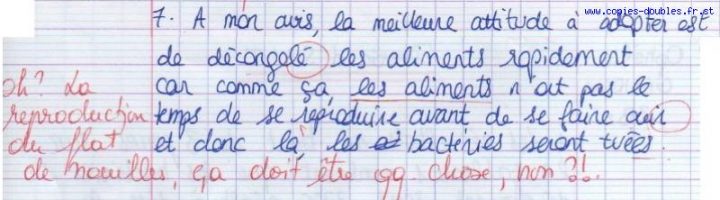 www.copies-doubles.fr.st
7. A mon avis, la meilleure attitude à adopter est
de décongelé les aliments rapidement
car comme ça, les aliments n'ont pas le
temps de se reproduire avant de se faire cuir
et donc là, les bactéries seront tuées.
oh? La
reproduction
du plat
de nouilles, ça doit être qq. chose, non ?!.